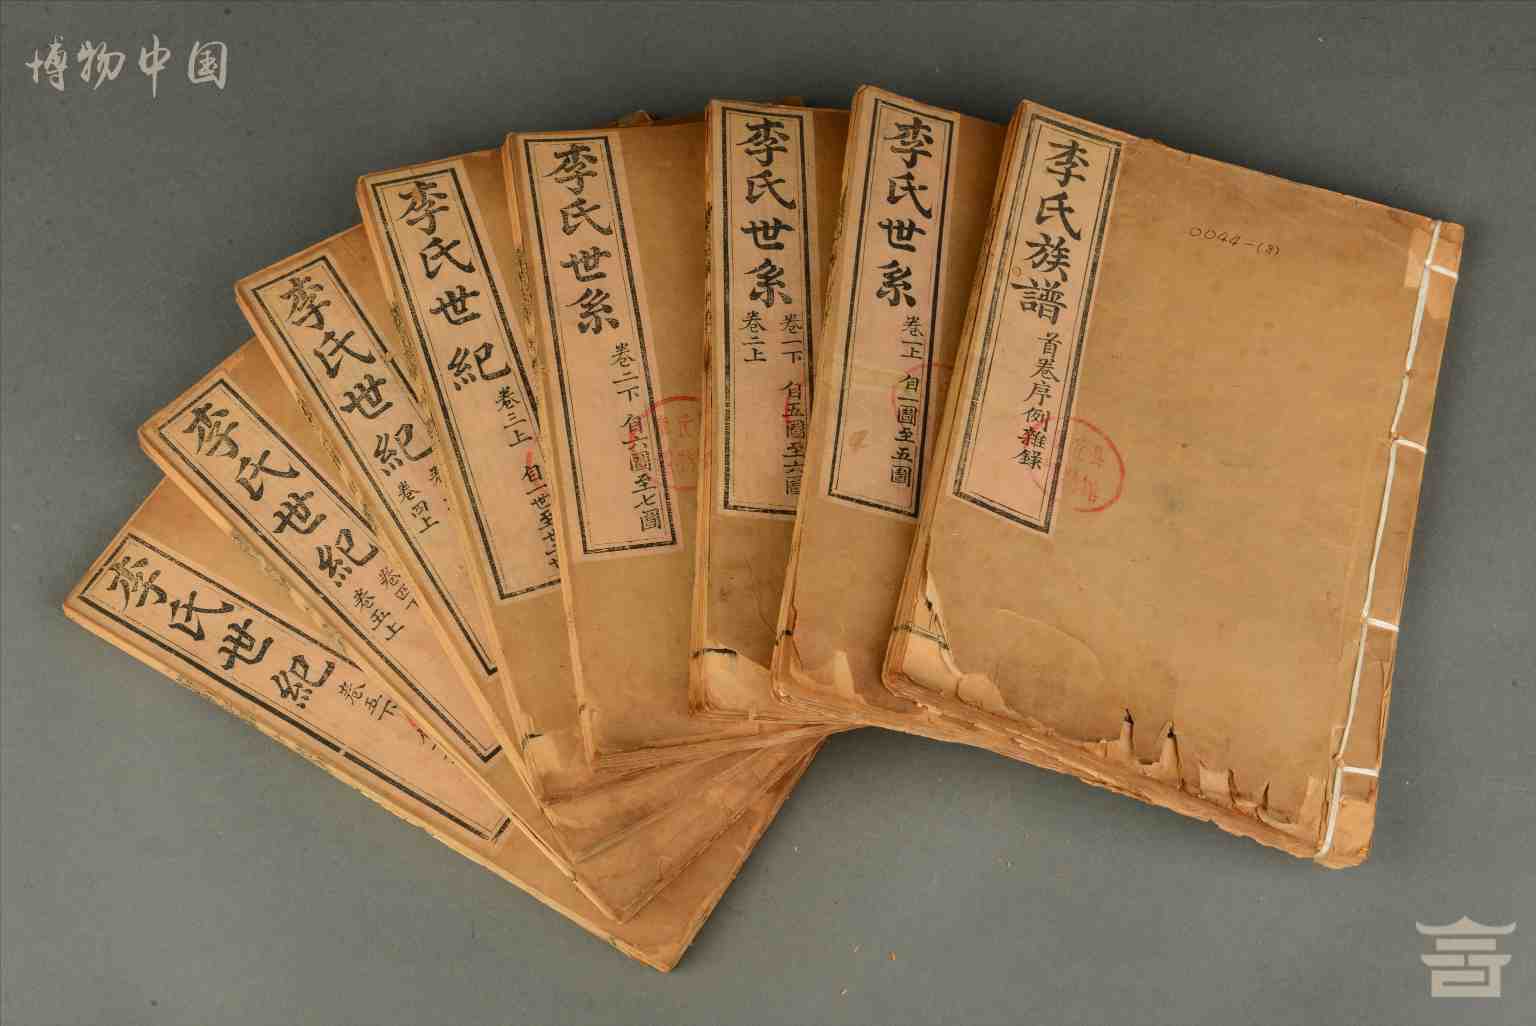 博物中国
李氏族譜
首卷序例雜錄
0044-(8)
李氏世系
卷一上 自一圖至五圖
李氏世系
卷一下 自五圖至六圖
卷二上
李氏世系
卷二下 自六圖至七圖
李氏世紀
卷三上 自一世至廿一世
李氏世紀
卷四上
李氏世紀
卷四下
卷五上
李氏世紀
卷五下